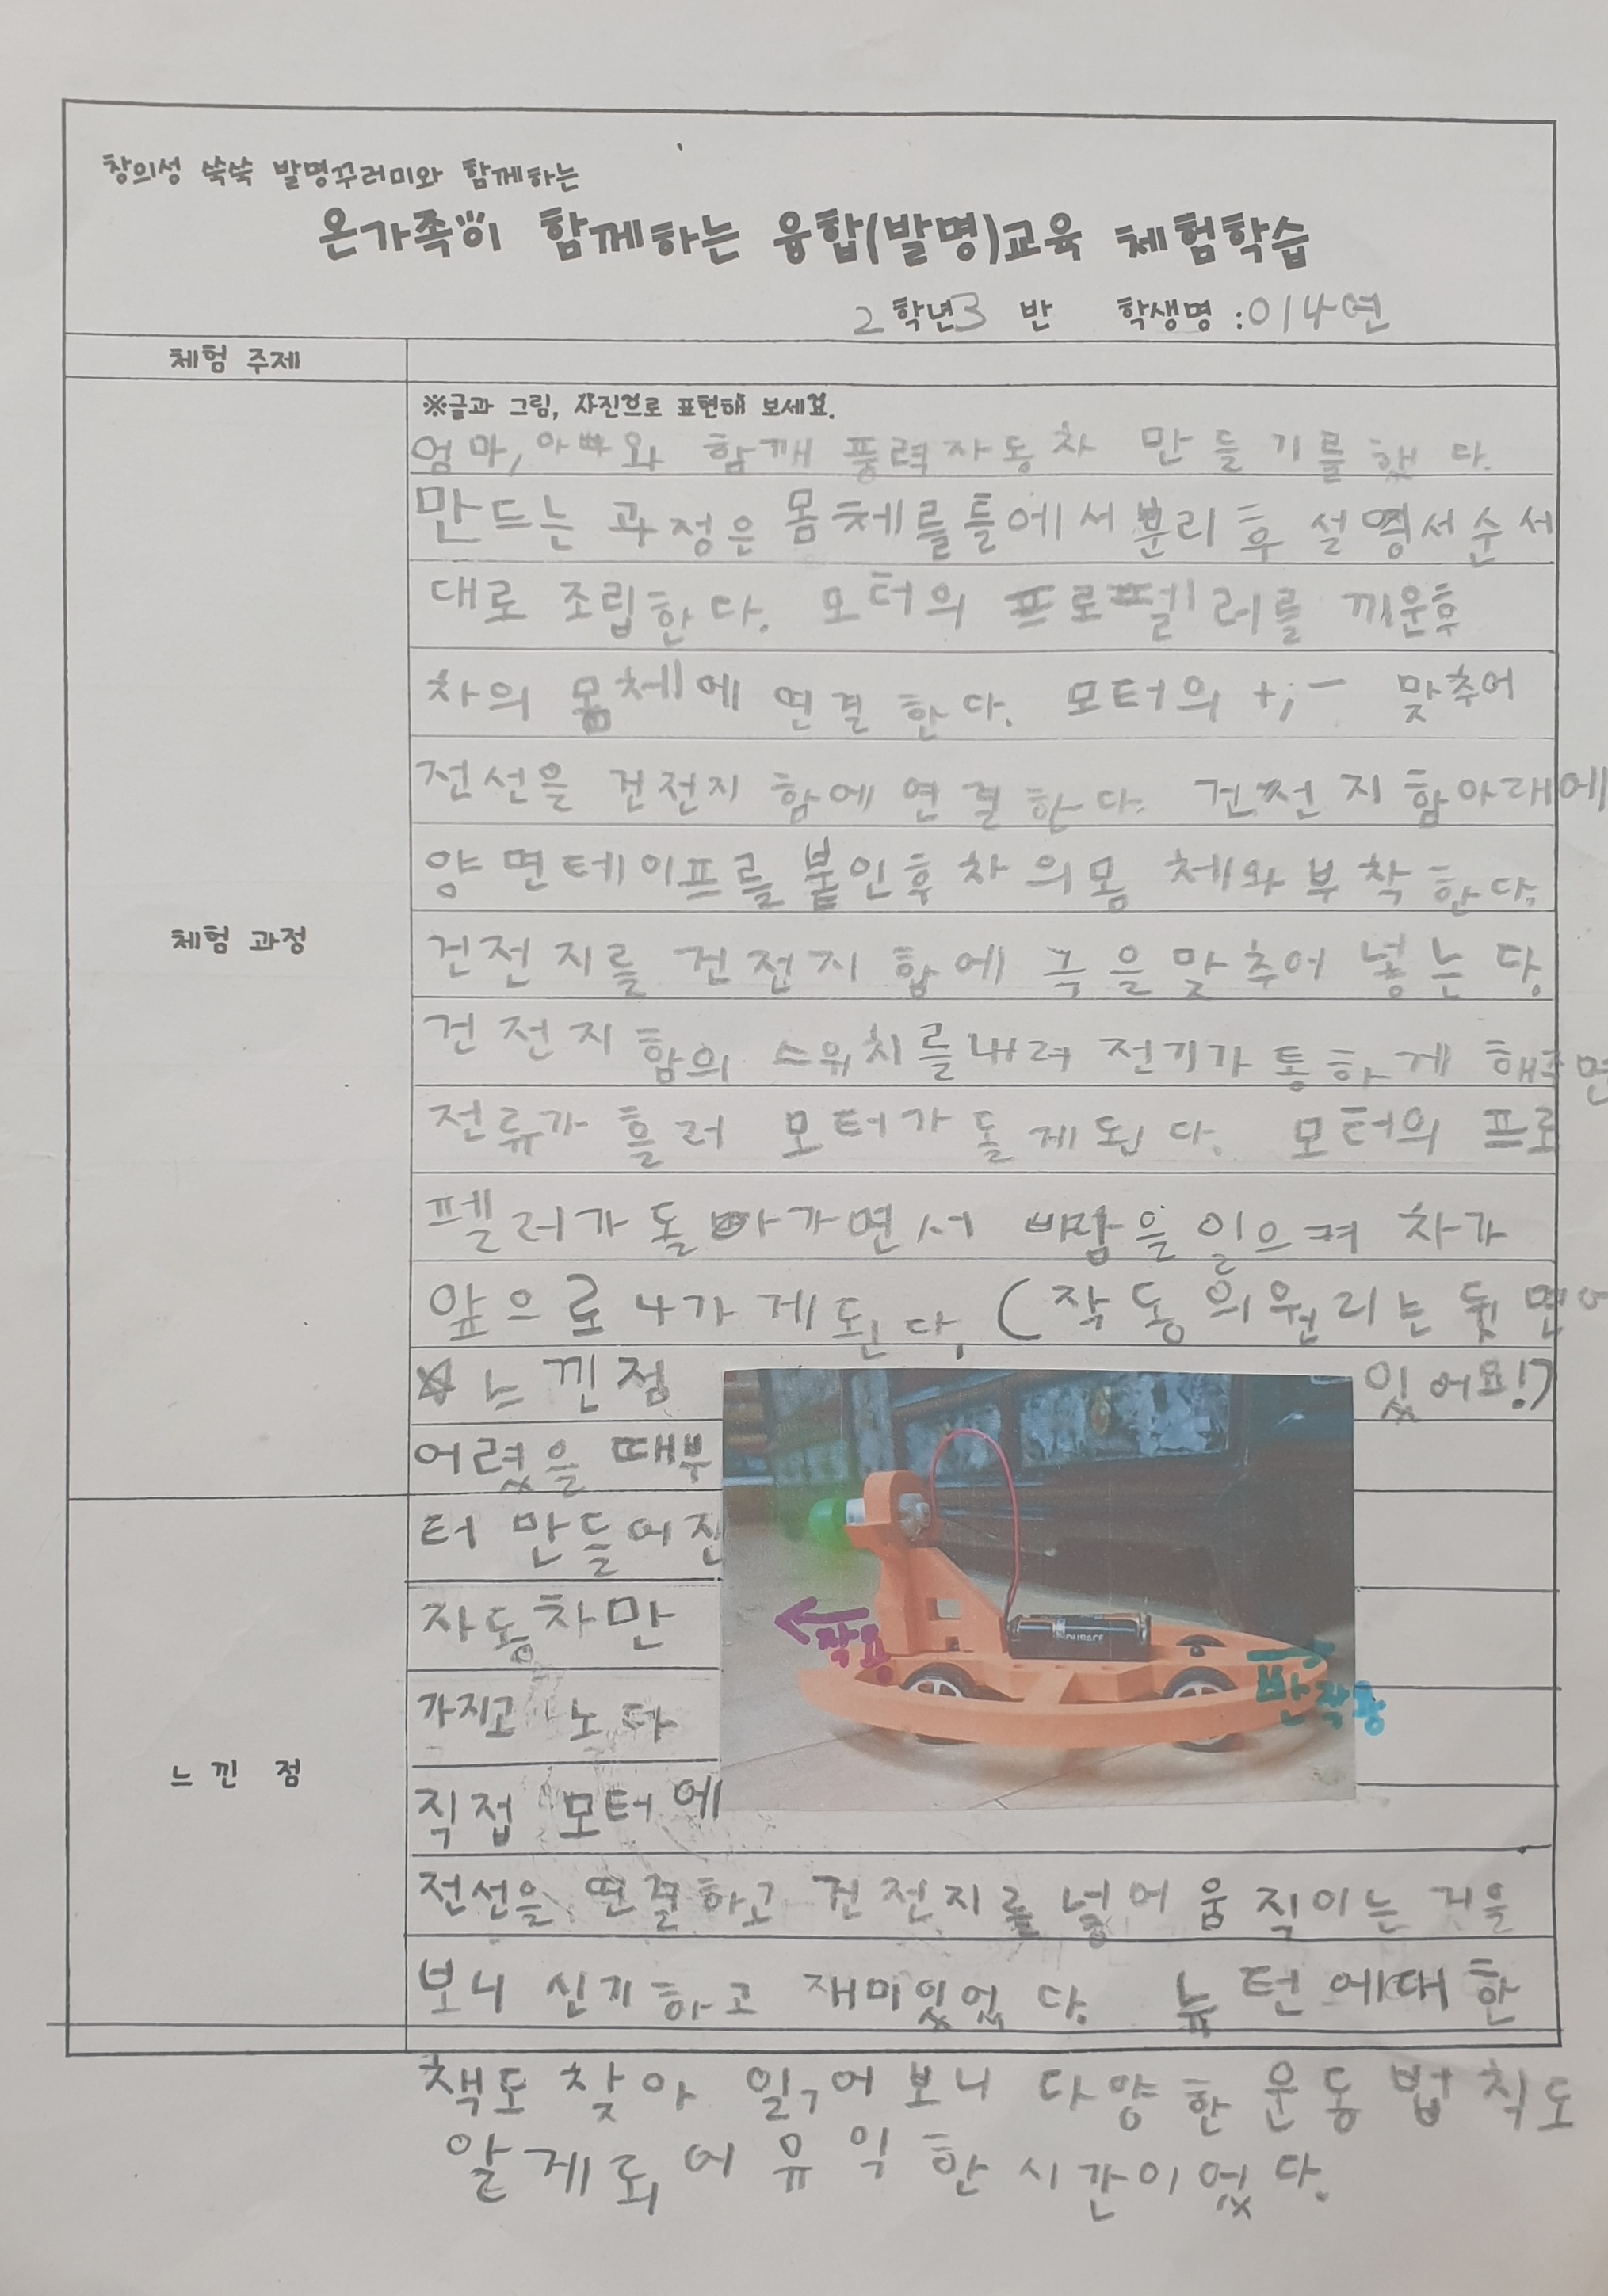 창의성 쑥쑥 발명꾸러미와 함께하는
온가족이 함께하는 융합(발명)교육 체험학습
2 학년 3 반 학생명 :
체험 주제
※글과 그림, 사진으로 표현해 보세요.
체험 과정
엄마, 아빠와 함깨 풍력자동차 만들기를 했다.
만드는 과정은 몸체를틀에서분리후 설명서순서
대로 조립한다. 모터의 프로펠러를 끼운후
차의 몸체에 연결한다. 모터의 +,- 맞추어
전선을 건전지 함에 연결한다. 건전지함아래에
양면테이프를 붙인후차의몸체와부착한다.
건전지를 건전지 함에 극을맞추어 넣는다.
건전지 함의 스위치를내려 전기가통하게 해주면
전류가 흘러 모터가돌게된다. 모터의 프로
펠러가돌아가면서 바람을일으켜 차가
앞으로나가게된다. (작동의원리는뒷면에
있어요!)
☆느낀점
어렸을때부
터 만들어진
자동차만
가지고 노다
직접 모터에
작용
반작용
DURACE
느낀 점
전선을 연결하고 건전지를넣어움직이는거을
보니 신기하고 재미있었다. 뉴턴에대한
책도찾아 읽어보니 다양한운동법칙도
알게되어유익한시간이었다.